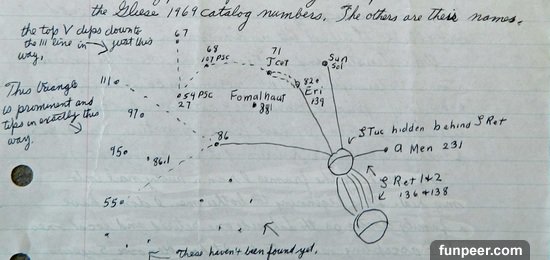 the Gliese 1969 catalog numbers. The others are their names.
the top V dips down to
the 111 line in → just this
way.
67
68
107 PSC
71
Tcet
Sun
Sol
82
Eri
139
54 PSC
27
Fomalhaut
881
This triangle
is prominent and
tips in exactly this
way.
111
97
95
86.1
55
86
ζ Tuc hidden behind ζ Ret
α Men 231
ζ Ret 1&2
136 & 138
These haven't been found yet.
funpeer.com